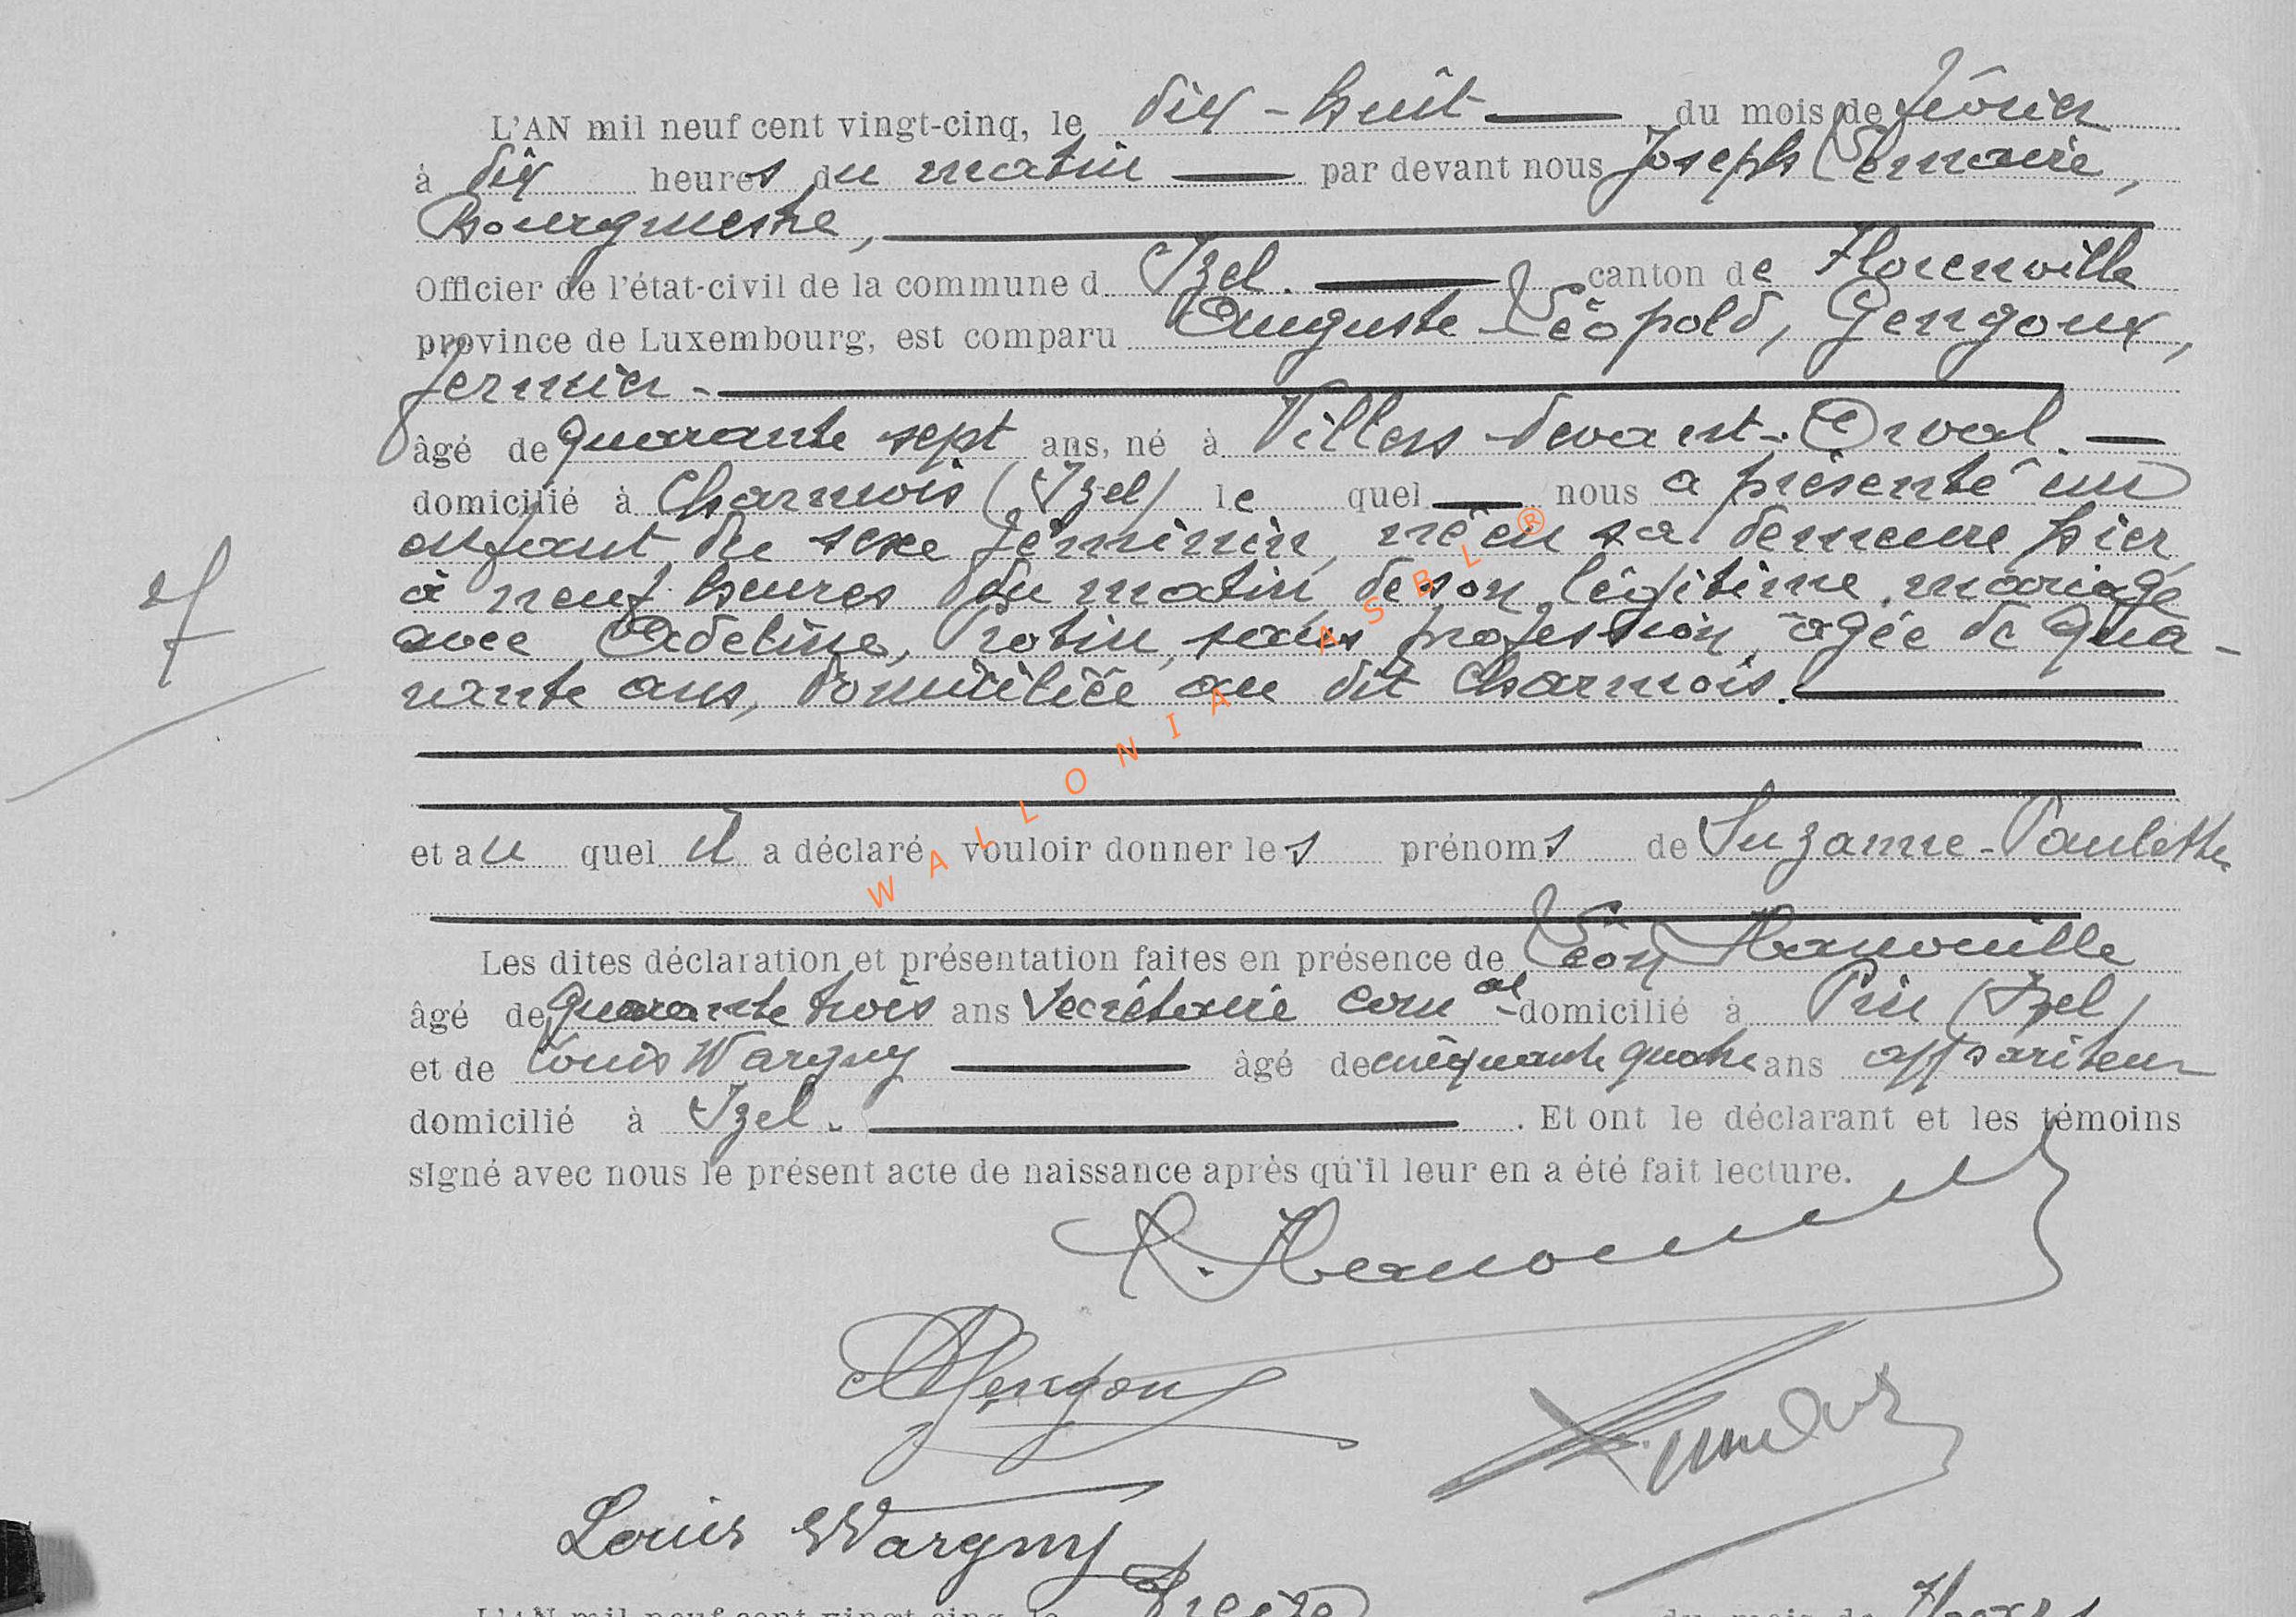 L'AN mil neuf cent vingt-cinq, le dix-huit du mois de février
à dix heures du matin par devant nous Joseph Lemaire,
Bourgmestre,
Officier de l'état-civil de la commune d Izel. canton de Florenville
province de Luxembourg, est comparu Auguste Léopold, Gengoux,
fermier.
âgé de quarante sept ans, né à Villers-devant-Orval.
domicilié à Charmois (Izel) lequel nous a présenté un
enfant du sexe féminin, né en sa demeure hier,
à neuf heures du matin, de son légitime mariage
avec Adeline, Robin, sans profession, âgée de qua-
rante ans, domiciliée au dit Charmois.
et au quel il a déclaré vouloir donner les prénoms de Suzanne-Paulette
Les dites déclaration et présentation faites en présence de Léon Hanouille
âgé de quarante trois ans Secrétaire comal domicilié à Pin (Izel)
et de Louis Wargny âgé de cinquante quatre ans appariteur
domicilié à Izel. . Et ont le déclarant et les témoins
signé avec nous le présent acte de naissance après qu'il leur en a été fait lecture.
AGengoux
Louis Wargny
L'AN mil neuf cent vingt-cinq, le treize du mois de Mars
WALLONIA ASBL®